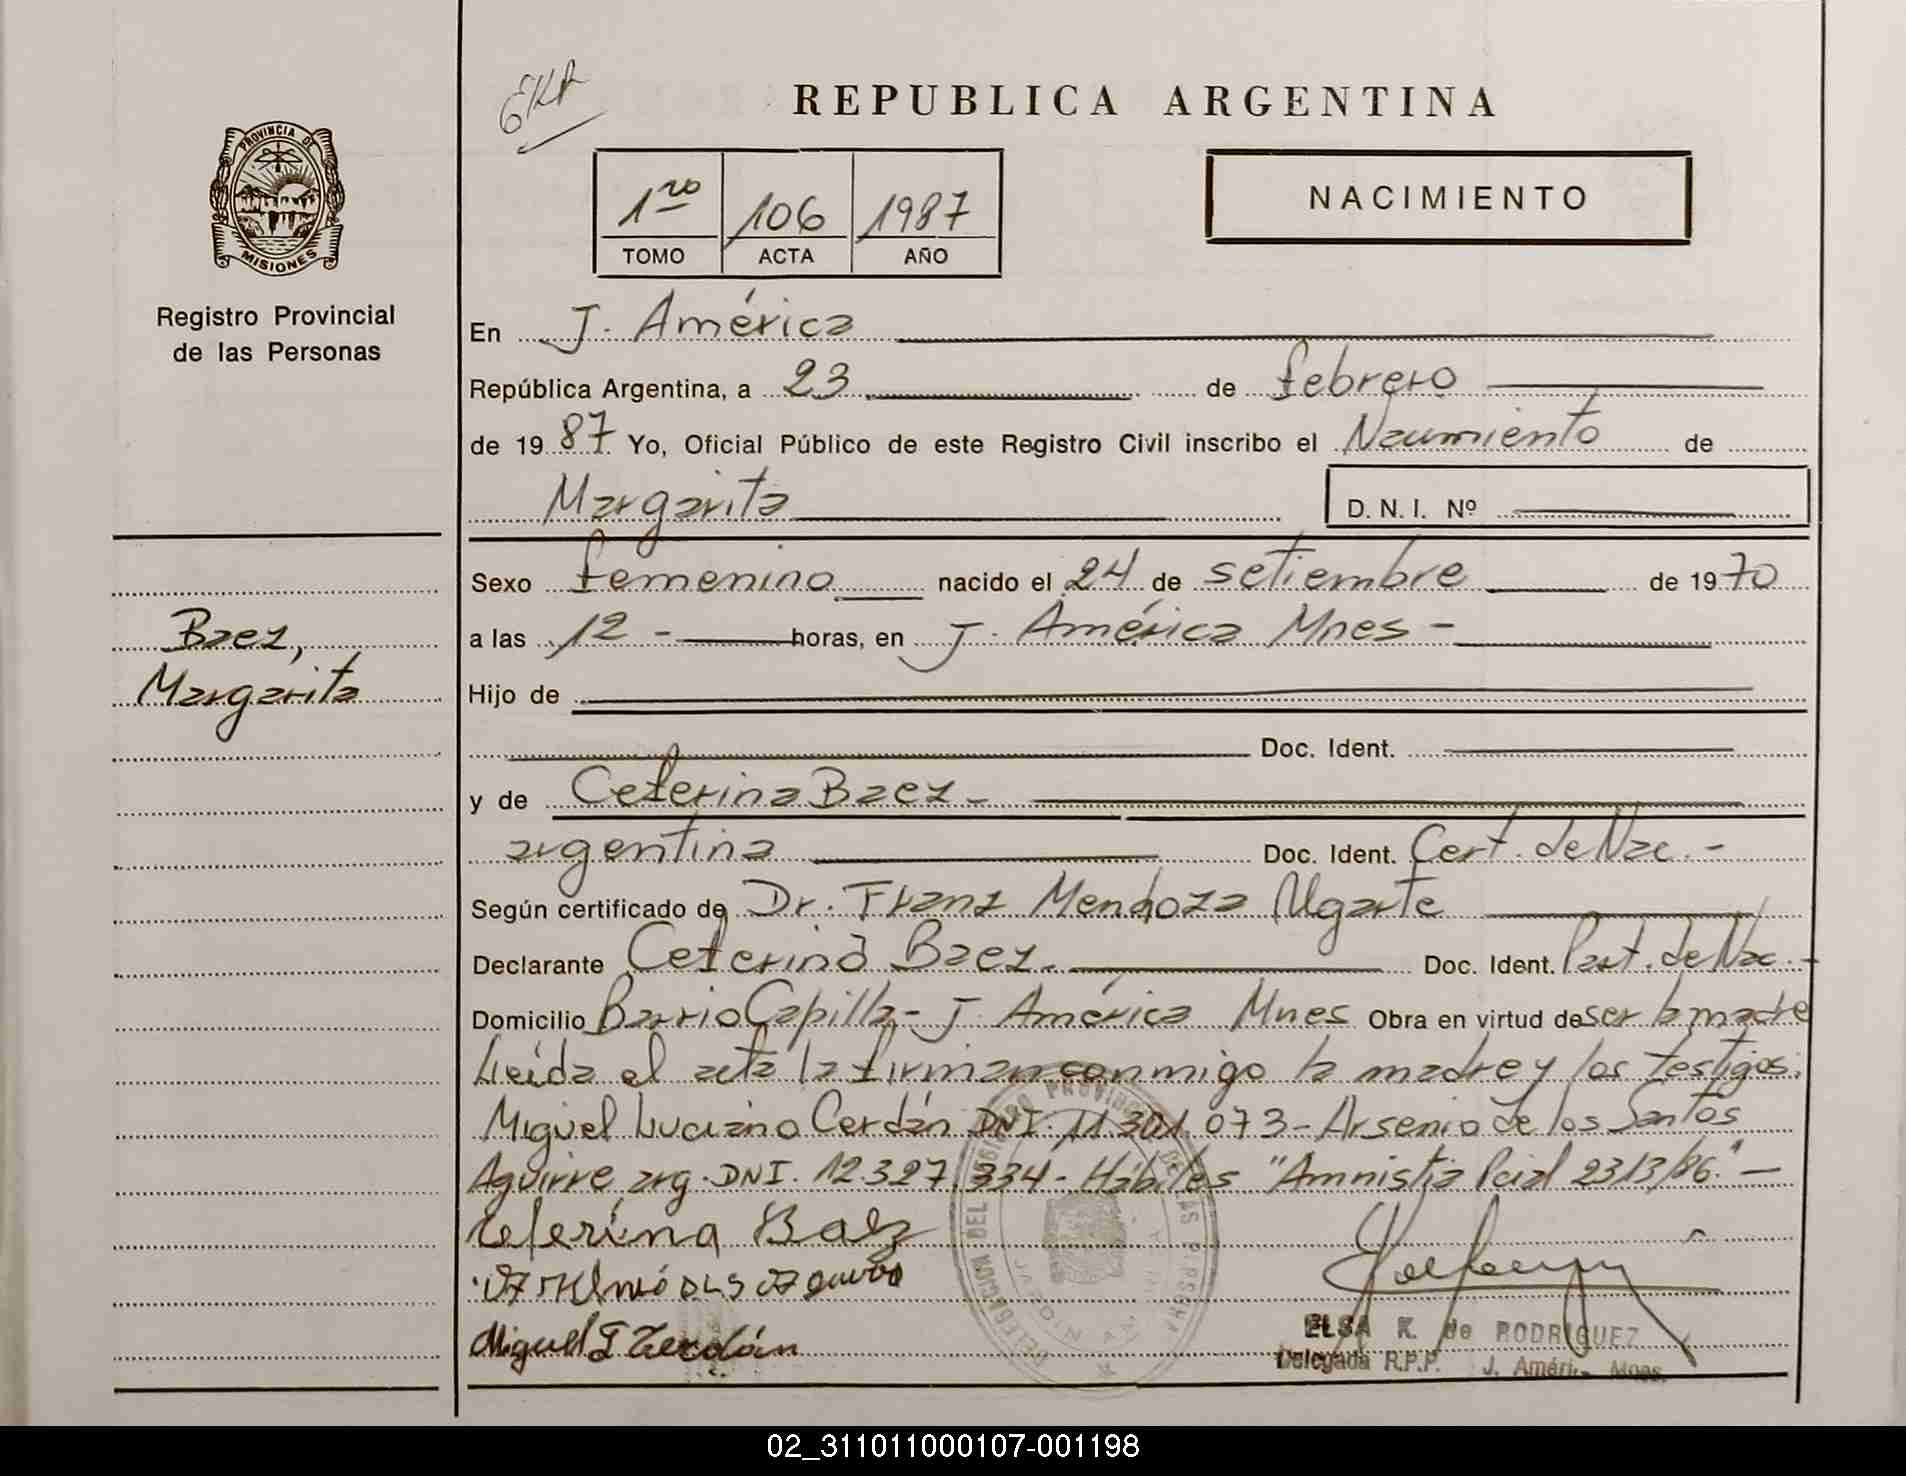 REPUBLICA ARGENTINA
PROVINCIA DE
MISIONES
Registro Provincial
de las Personas
1ro 106 1987
TOMO ACTA AÑO
NACIMIENTO
En J. América
República Argentina, a 23 de febrero
de 1987 Yo, Oficial Público de este Registro Civil inscribo el Nacimiento de
Margarita
D. N. I. Nº
Baez,
Margarita
Sexo femenino nacido el 24 de setiembre de 1970
a las 12 - horas, en J. América Mnes -
Hijo de
Doc. Ident.
y de Ceferina Baez -
argentina Doc. Ident. Cert. de Nac. -
Según certificado de Dr. Franz Mendoza Ugarte
Declarante Ceferina Baez. Doc. Ident. Part. de Nac. -
Domicilio Barrio Capilla - J. América Mnes Obra en virtud de ser la madre
Leída el acta la firman conmigo la madre y los testigos:
Miguel Luciano Cerdán DNI. 11.301.073 - Arsenio de los Santos
Aguirre arg. DNI. 12.327.334 - Hábiles "Amnistía Pcial 23/3/86." -
Ceferina Baez
Miguel Cerdán
ELSA K. de RODRIGUEZ
Delegada R.P.P. J. Améri Mnes.
02_311011000107-001198